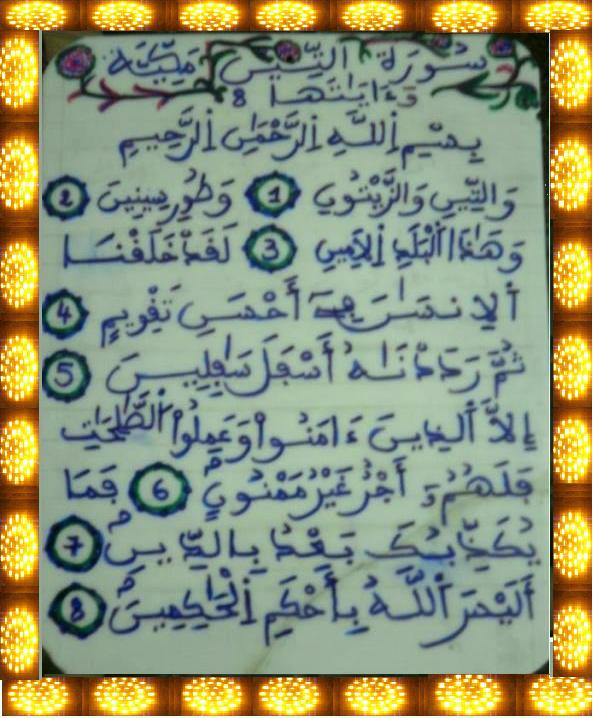 سُورَةُ التِّينِ مَكِّيَّة
وَءَايَاتُهَا 8
بِسْمِ اِللَّهِ اِلرَّحْمَٰنِ اِلرَّحِيمِ
وَالتِّينِ وَالزَّيْتُونِ 1 وَطُورِ سِينِينَ 2
وَهَٰذَا اَلْبَلَدِ اِلَامِينِ 3 لَقَدْ خَلَقْنَا
اَلِانسَٰنَ فِي أَحْسَنِ تَقْوِيمٍ 4
ثُمَّ رَدَدْنَٰهُ أَسْفَلَ سَٰفِلِينَ 5
إِلَّا اَلذِينَ ءَامَنُوا وَعَمِلُوا اُلصَّٰلِحَٰتِ
فَلَهُمُ أَجْرٌ غَيْرُ مَمْنُونٍ 6 فَمَا
يُكَذِّبُكَ بَعْدُ بِالدِّينِ 7
أَلَيْسَ اَللَّهُ بِأَحْكَمِ اِلْحَٰكِمِينَ 8